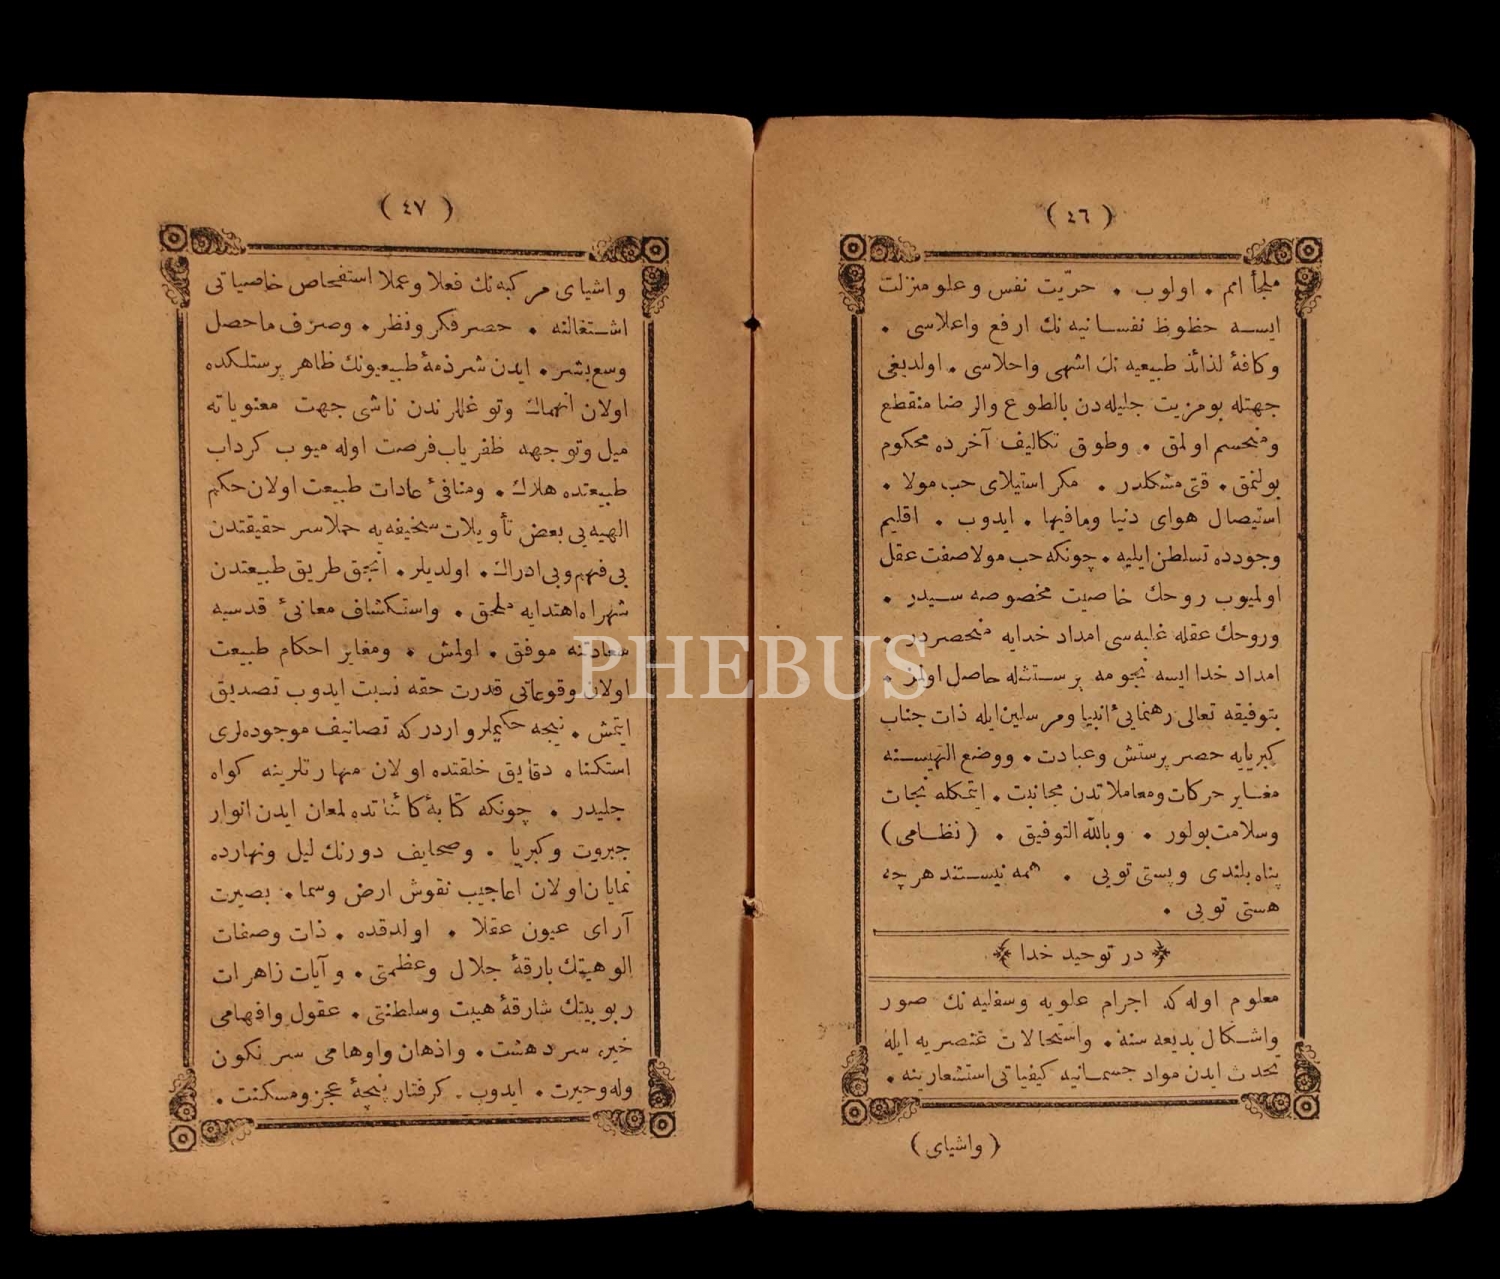 ( ٤٦ )
ملجأ امم . اولوب . حرّيت نفس وعلو منزلت
ايسه حظوظ نفسانيه نك ارفع واعلاسى .
وكافهٔ لذائذ طبيعيه نك اشهى واحلاسى . اولديغى
جهتله بومزيت جليله دن بالطوع والرضا منقطع
ومنحسم اولمق . وطوق تكاليف آخرده محكوم
بولنمق . قتى مشكلدر . مكر استيلاى حب مولا .
استيصال هواى دنيا ومافيها . ايدوب . اقليم
وجودده تسلطن ايليه . چونكه حب مولا صفت عقل
اولميوب روحك خاصيت مخصوصه سيدر .
وروحك عقله غلبه سى امداد خدايه منحصردر .
امداد خدا ايسه نجومه پرستشله حاصل اولمز .
بتوفيقه تعالى رهنمائىٔ انبيا ومرسلين ايله ذات جناب
كبريايه حصر پرستش وعبادت . ووضع الٰهيسنه
مغاير حركات ومعاملاتدن مجانبت . ايتمكله نجات
وسلامت بولور . وبالله التوفيق . ( نظامى )
پناه بلندى وپستى تويى . همه نيستند هرچه
هستى تويى .
در توحيد خدا
معلوم اوله كه اجرام علويه وسفليه نك صور
واشكال بديعه سنه . واستحالات عنصريه ايله
تحدث ايدن مواد جسمانيه كيفياتى استشعارينه .
( واشياى )
( ٤٧ )
واشياى مركبه نك فعلا وعملا استفحاص خاصياتى
اشتغالنه . حصر فكر ونظر . وصرف ماحصل
وسع بشر . ايدن شرذمهٔ طبيعيونك ظاهر پرستلكده
اولان انهماك وتوغللرندن ناشى جهت معنوياته
ميل وتوجهه ظفرياب فرصت اوله ميوب كرداب
طبيعتده هلاك . ومنافىٔ عادات طبيعت اولان حكم
الهيه يى بعض تأويلات سخيفه يه حملا سر حقيقتدن
بى فهم وبى ادراك . اولديلر . انجق طريق طبيعتدن
شهراه اهتدايه ملحق . واستكشاف معانىٔ قدسيه
سعادتنه موفق . اولمش . ومغاير احكام طبيعت
اولان وقوعاتى قدرت حقه نسبت ايدوب تصديق
ايتمش . نيجه حكيملر واردركه تصانيف موجوده لرى
استكناه دقايق خلقتده اولان مهارتلرينه كواه
جليدر . چونكه كتابهٔ كائناتده لمعان ايدن انوار
جبروت وكبريا . وصحايف دورنك ليل ونهارده
نمايان اولان اعاجيب نقوش ارض وسما . بصيرت
آراى عيون عقلا . اولدقده . ذات وصفات
الوهيتك بارقهٔ جلال وعظمتى . وآيات زاهرات
ربوبيتك شارقهٔ هيبت وسلطنتى . عقول وافهامى
خيره سر دهشت . واذهان واوهامى سرنكون
وله وحيرت . ايدوب . كرفتار پنجهٔ عجز ومسكنت .
PHEBUS